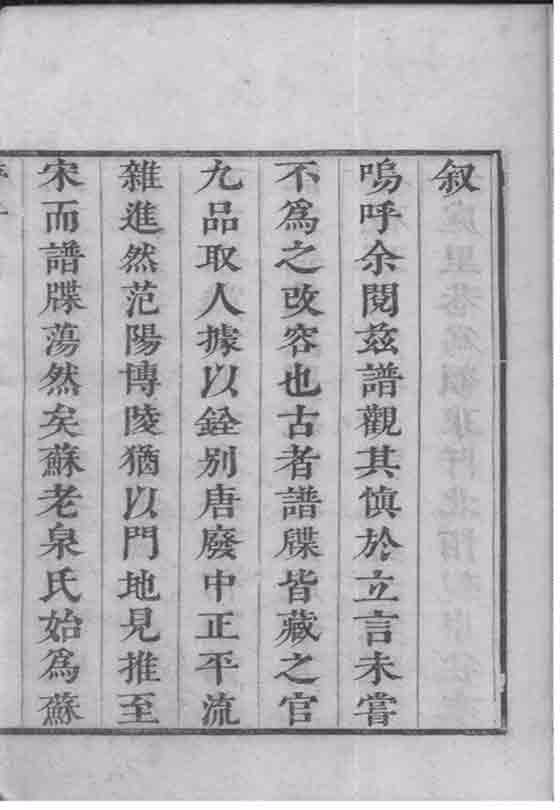 叙
嗚呼余閱茲譜觀其慎於立言未嘗
不爲之改容也古者譜牒皆藏之官
九品取人據以銓別唐廢中正平流
雜進然范陽博陵猶以門地見推至
宋而譜牒蕩然矣蘇老泉氏始爲蘇